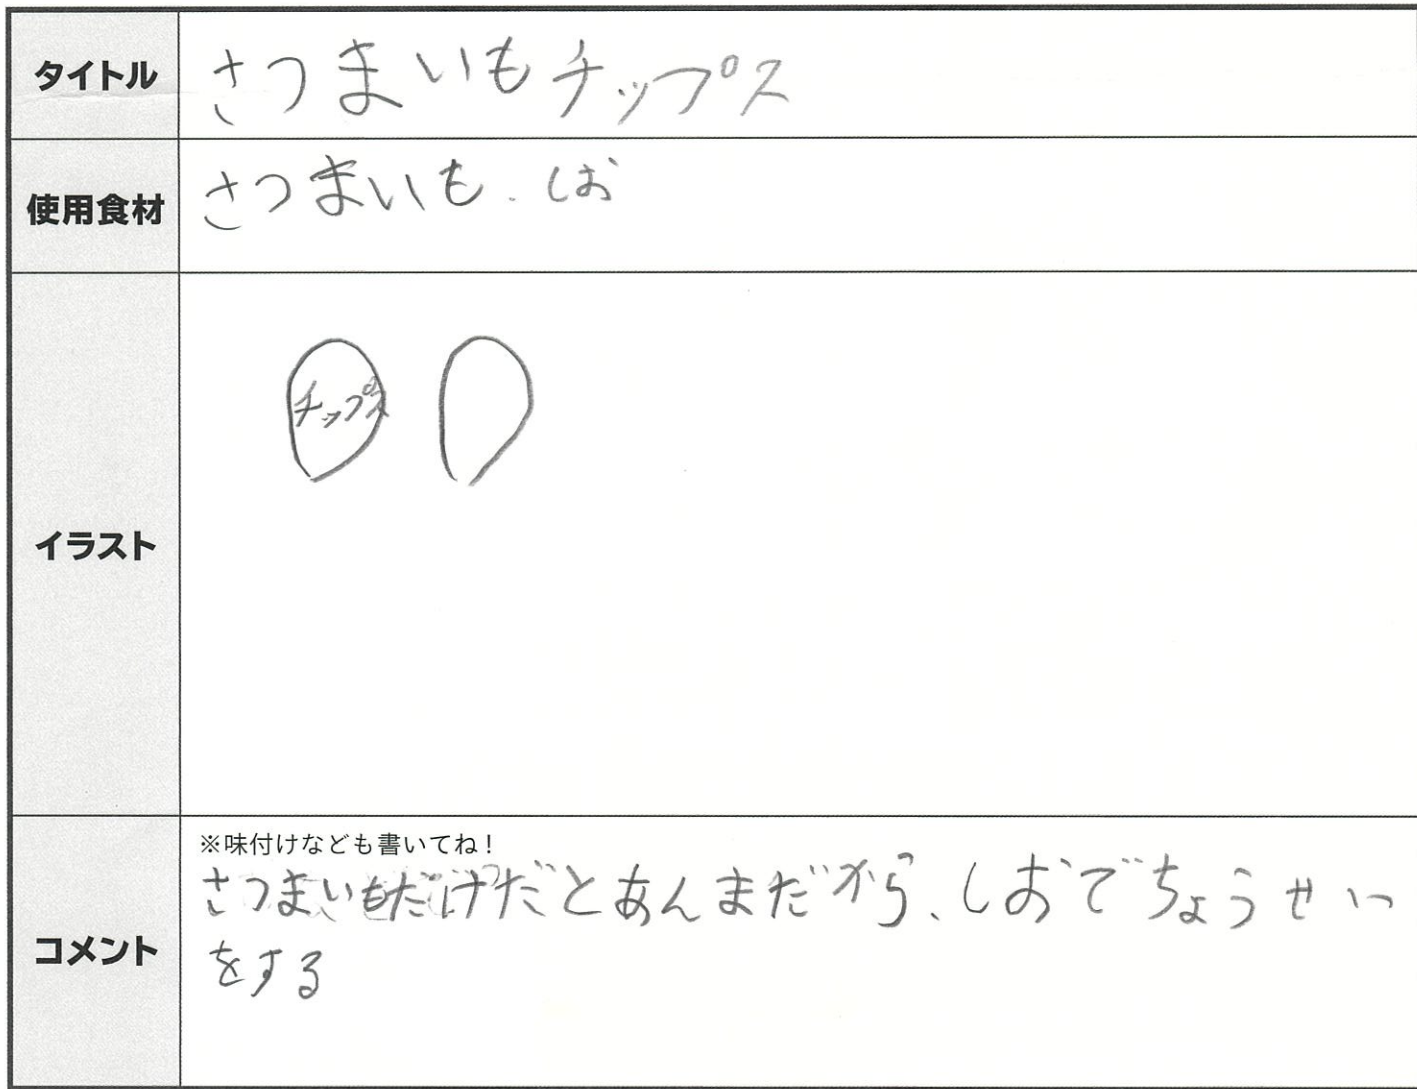 タイトル
さつまいもチップス
使用食材
さつまいも、しお
イラスト
チップス
コメント
※味付けなども書いてね！
さつまいもだけだとあんまだから、しおでちょうせい
をする